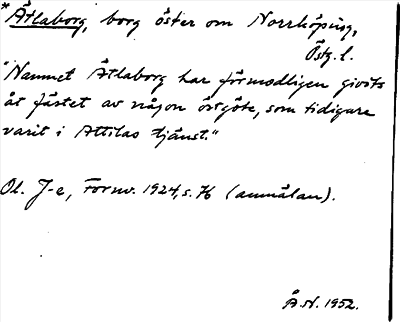 * Ätlaborg, borg öster om Norrköping,
Östg. l.
"Namnet Ätlaborg har förmodligen givits
åt fästet av någon östgöte, som tidigare
varit i Attilas tjänst."
Ol. J-e, Fornv. 1924, s. 76 (anmälan).
Å.N. 1952.